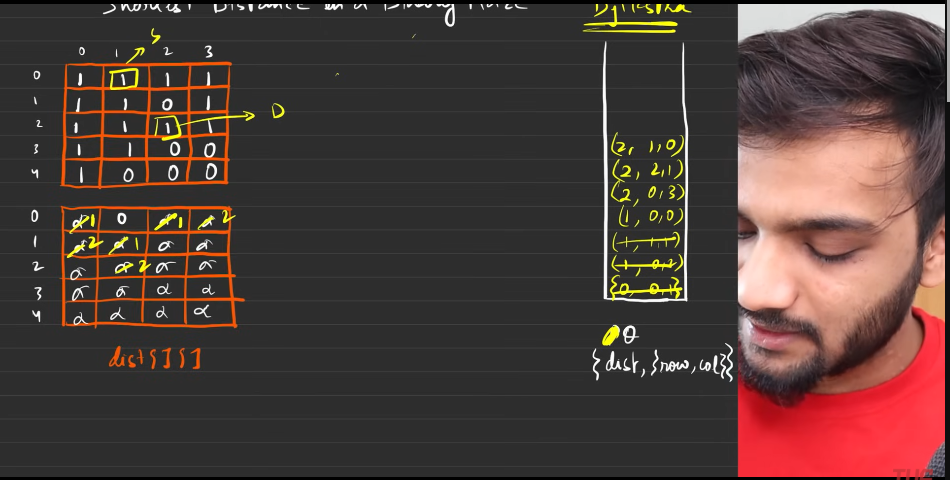 Shortest Distance in a Binary Maze
Dijkstra
S
0 1 2 3
0 1 1 1 1
1 1 1 0 1
2 1 1 1 1
D
3 1 1 0 0
4 1 0 0 0
0 ∞ 1 0 ∞ 1 ∞ 2
1 ∞ 2 ∞ 1 ∞ ∞
2 ∞ ∞ 2 ∞ ∞
3 ∞ ∞ ∞ ∞
4 ∞ ∞ ∞ ∞
dist[][]
(2, 1,0)
(2, 2,1)
(2, 0,3)
(1, 0,0)
(1, 1,1)
(1, 0,2)
{0, 0,1}
Q
{dist, {row, col}}